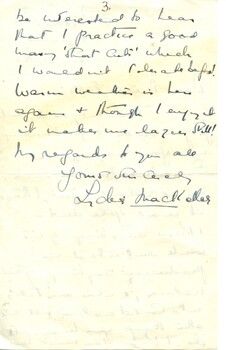 3.
be interested to hear
that I practice a good
many 'short cuts' which
I wouldn't tolerate before!
Warm weather is here
again & though I enjoy it
it makes me lazier still!
My regards to you all
Yours sincerely
MacKellar